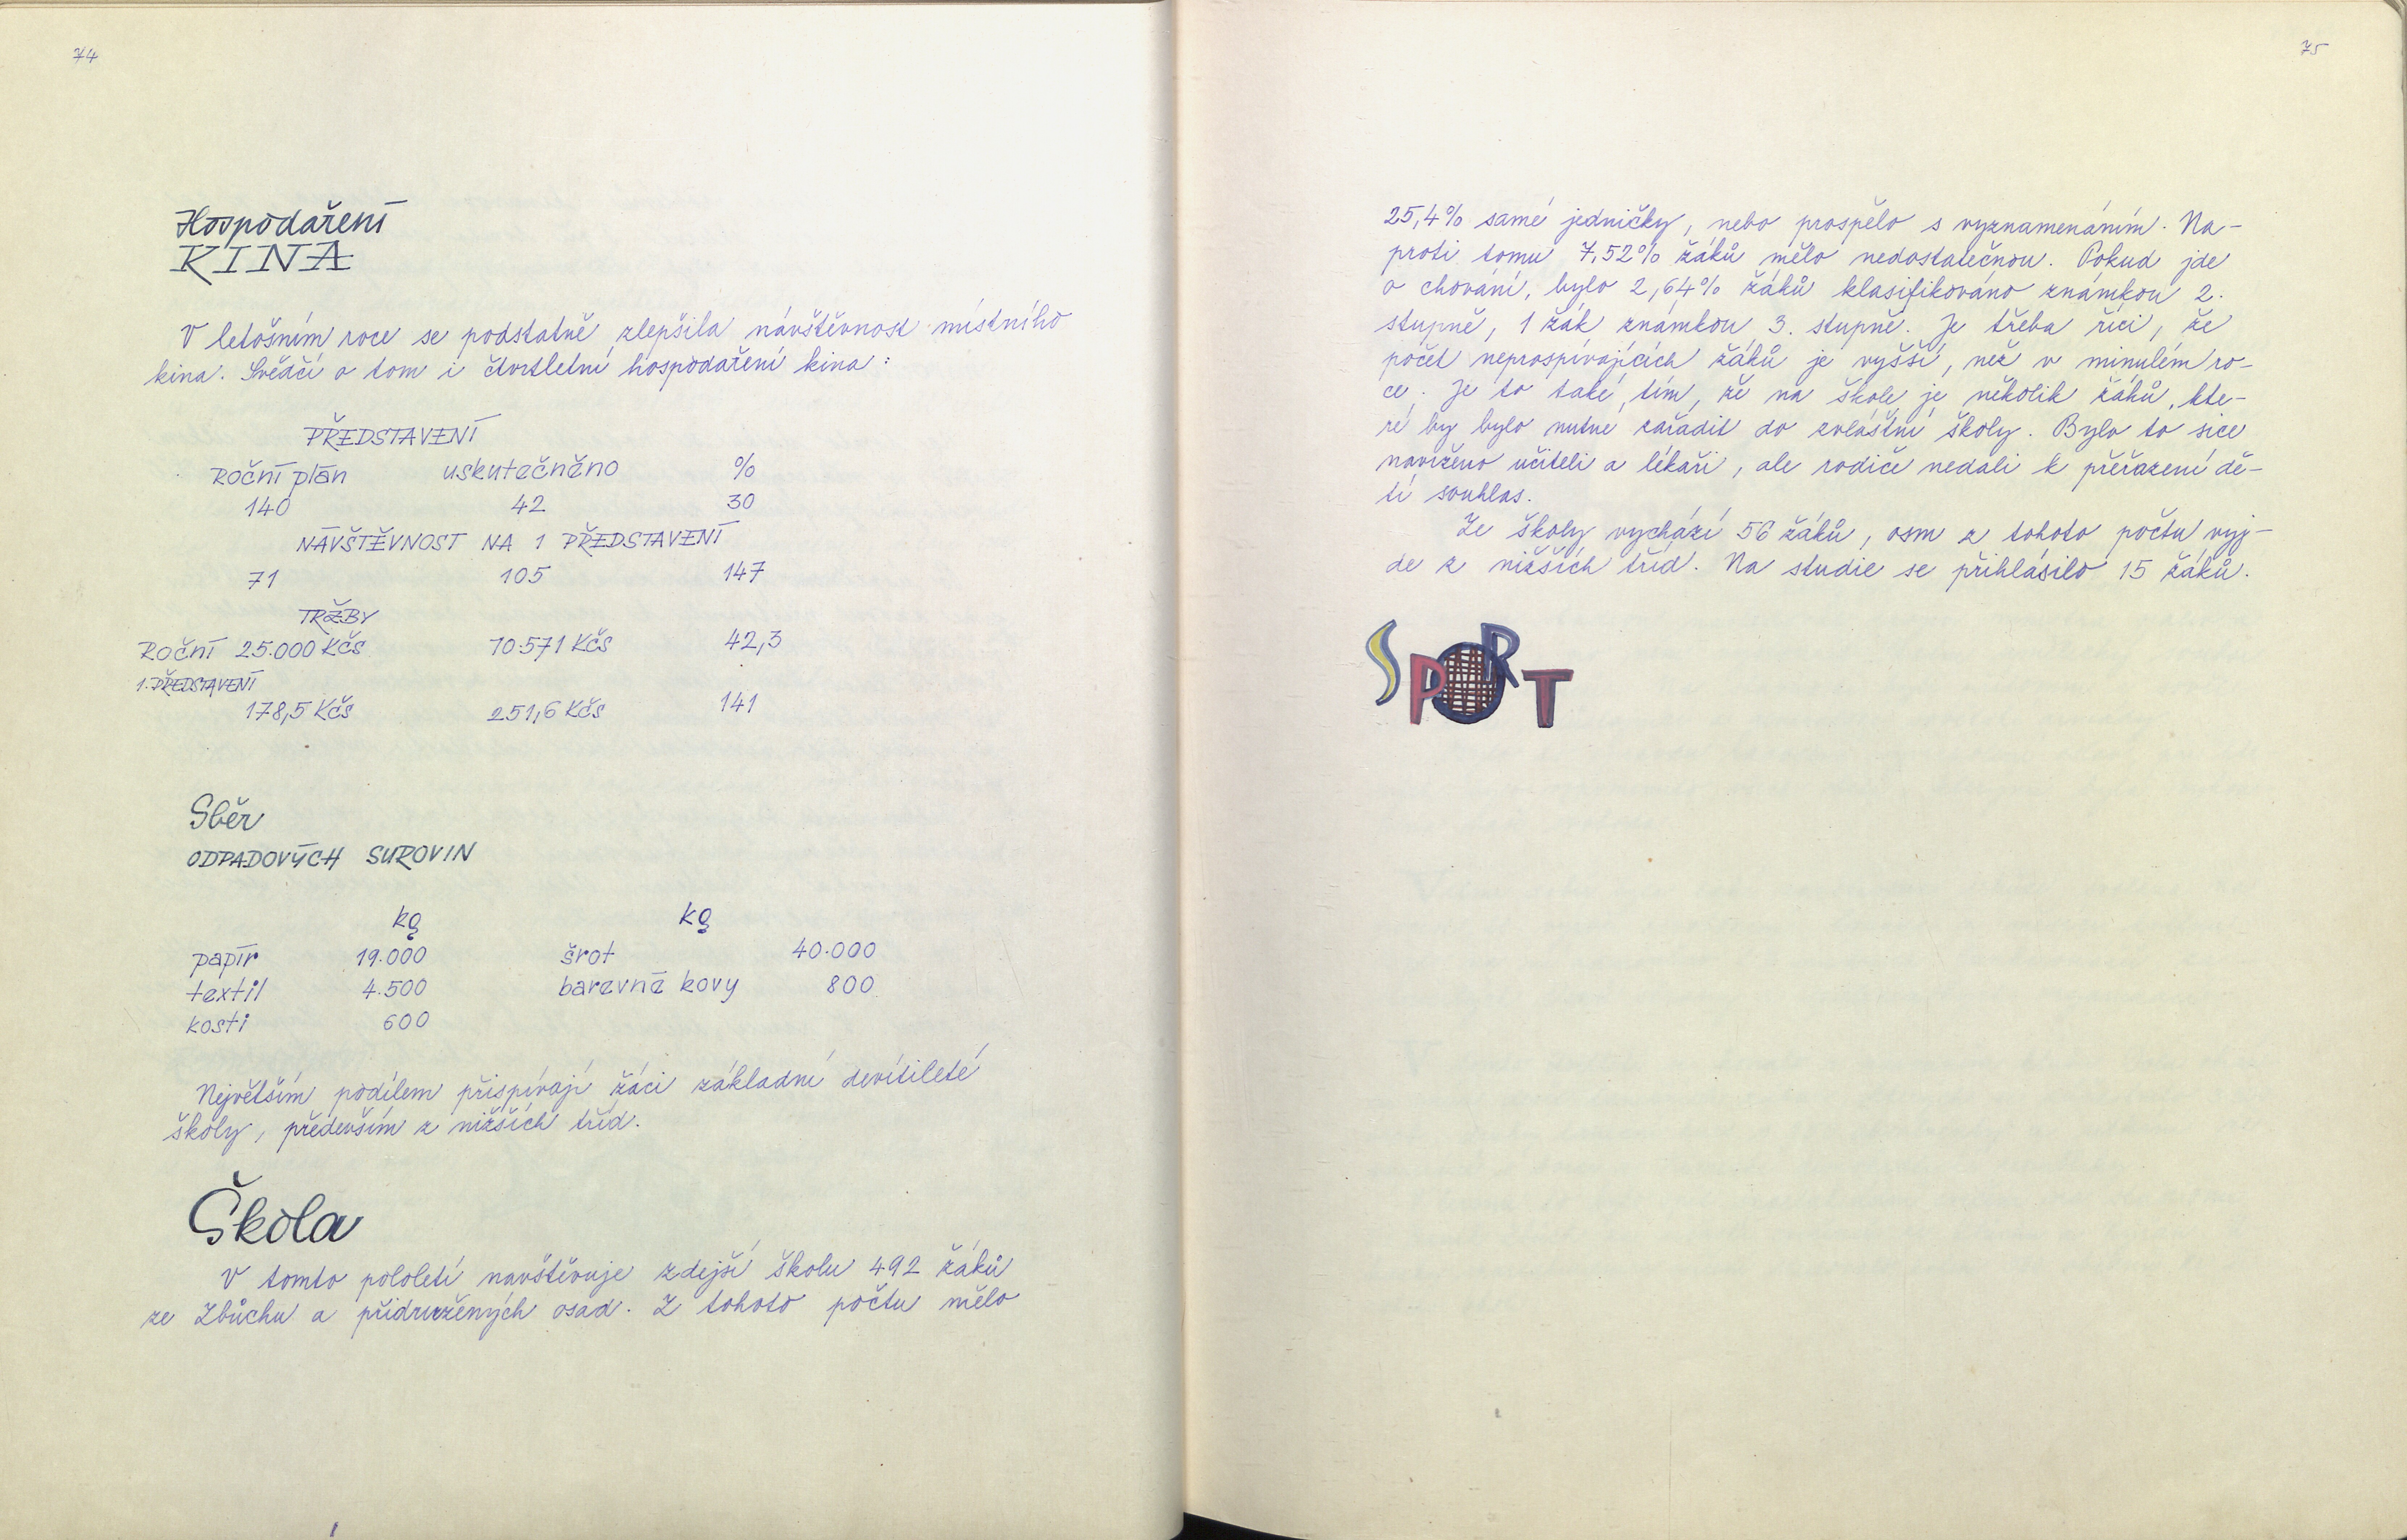 74
Hospodaření
KINA
V letošním roce se podstatně zlepšila návštěvnost místního
kina. Svědčí o tom i čtvrtletní hospodaření kina :
PŘEDSTAVENÍ
Roční plán uskutečněno %
140 42 30
NÁVŠTĚVNOST NA 1 PŘEDSTAVENÍ
71 105 147
TRŽBY
Roční 25.000 Kčs 10.571 Kčs 42,3
1. PŘEDSTAVENÍ
178,5 Kčs 251,6 Kčs 141
Sběr
ODPADOVÝCH SUROVIN
kg kg
papír 19.000 šrot 40.000
textil 4.500 barevné kovy 800
kosti 600
Největším podílem přispívají žáci základní devítileté
školy, především z nižších tříd.
Škola
V tomto pololetí navštěvuje zdejší školu 492 žáků
ze Zbůchu a přidružených osad. Z tohoto počtu mělo
75
25,4% samé jedničky, nebo prospělo s vyznamenáním. Na-
proti tomu 7,52% žáků mělo nedostatečnou. Pokud jde
o chování, bylo 2,64% žáků klasifikováno známkou 2.
stupně, 1 žák známkou 3. stupně. Je třeba říci, že
počet neprospívajících žáků je vyšší, než v minulém ro-
ce. Je to také tím, že na škole je několik žáků, kte-
ré by bylo nutné zařadit do zvláštní školy. Bylo to sice
navrženo učiteli a lékaři, ale rodiče nedali k přeřazení dě-
tí souhlas.
Ze školy vychází 56 žáků, osm z tohoto počtu vyj-
de z nižších tříd. Na studie se přihlásilo 15 žáků.
SPORT